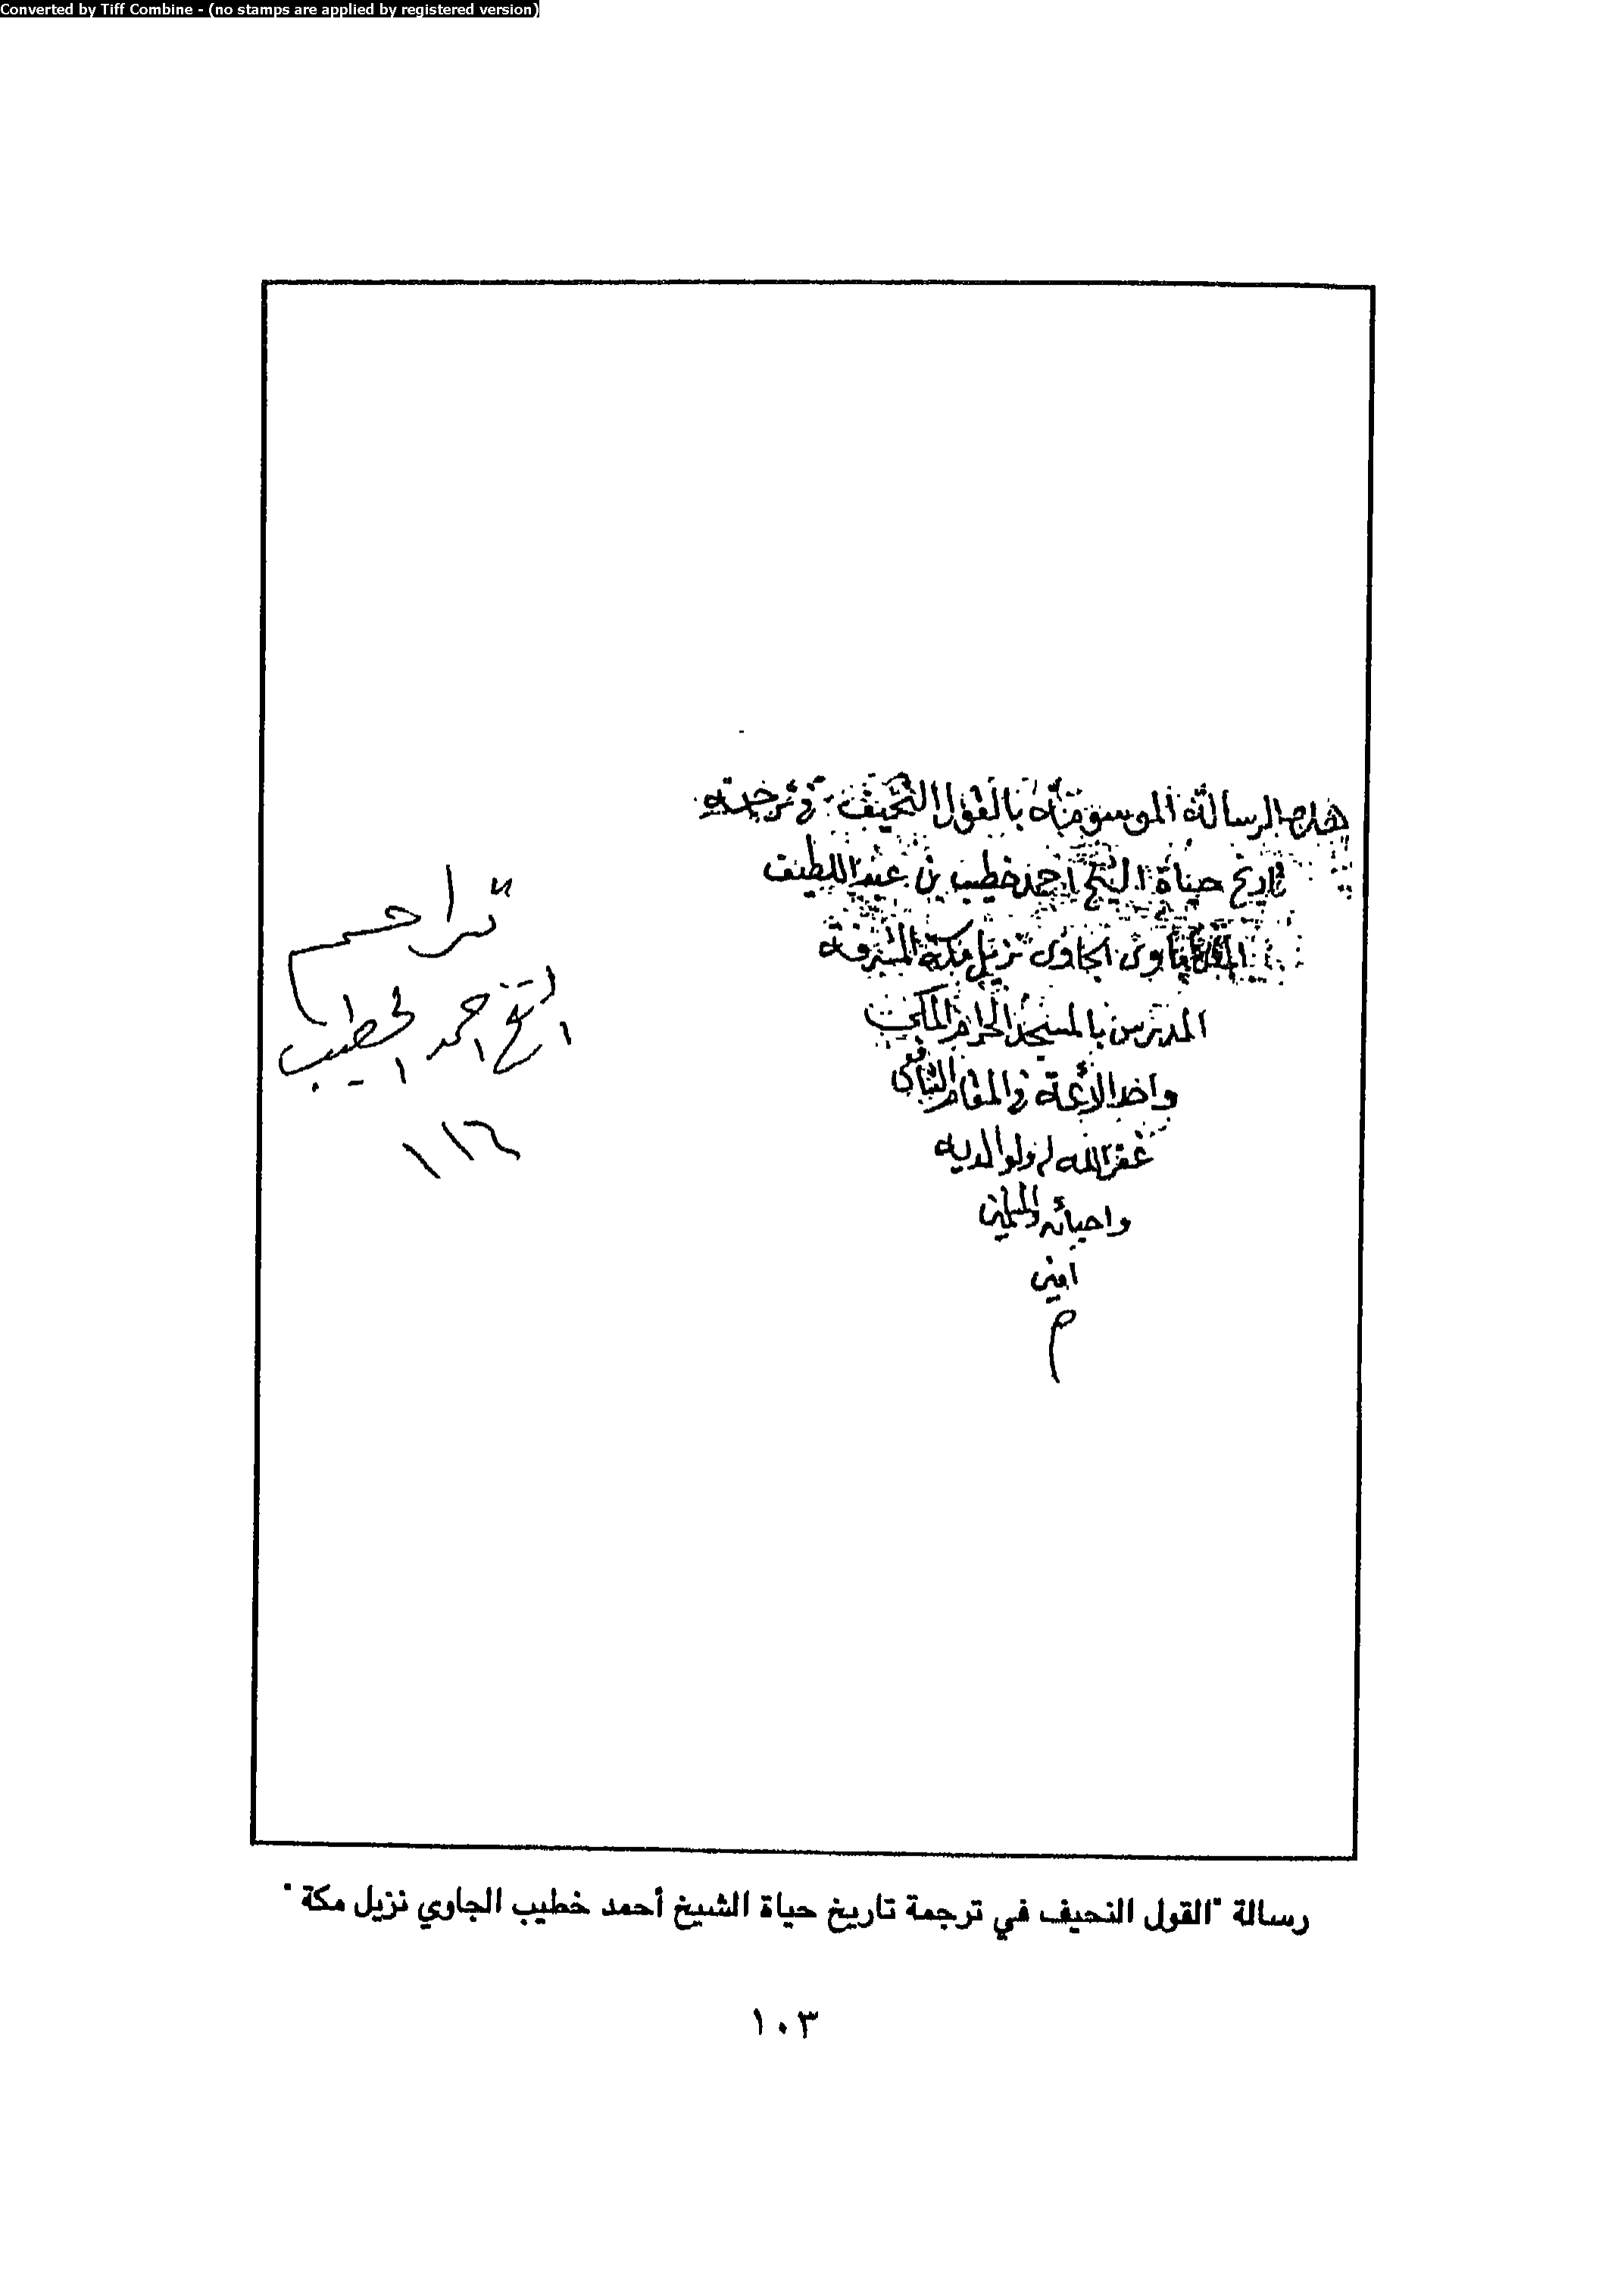 Converted by Tiff Combine - (no stamps are applied by registered version)
هذه الرسالة الموسومة بالقول النحيف في ترجمة
تاريخ حياة الشيخ احمد خطيب بن عبد اللطيف
المنكابوى الجاوى نزيل مكة المشرفة
المدرس بالمسجد الحرام المكى
واحد الأئمة في المقام الشافعى
غفر الله له ولوالديه
واحبائه والمسلمين
امين
م
تراجم
الشيخ احمد الخطيب
١١٦
رسالة "القول النحيف في ترجمة تاريخ حياة الشيخ أحمد خطيب الجاوي نزيل مكة"
١٠٣